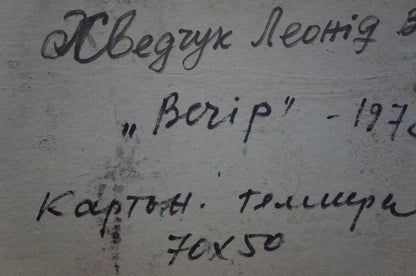 Хведчук Леонід
„Вечір" - 197
картон. темпера
70x50